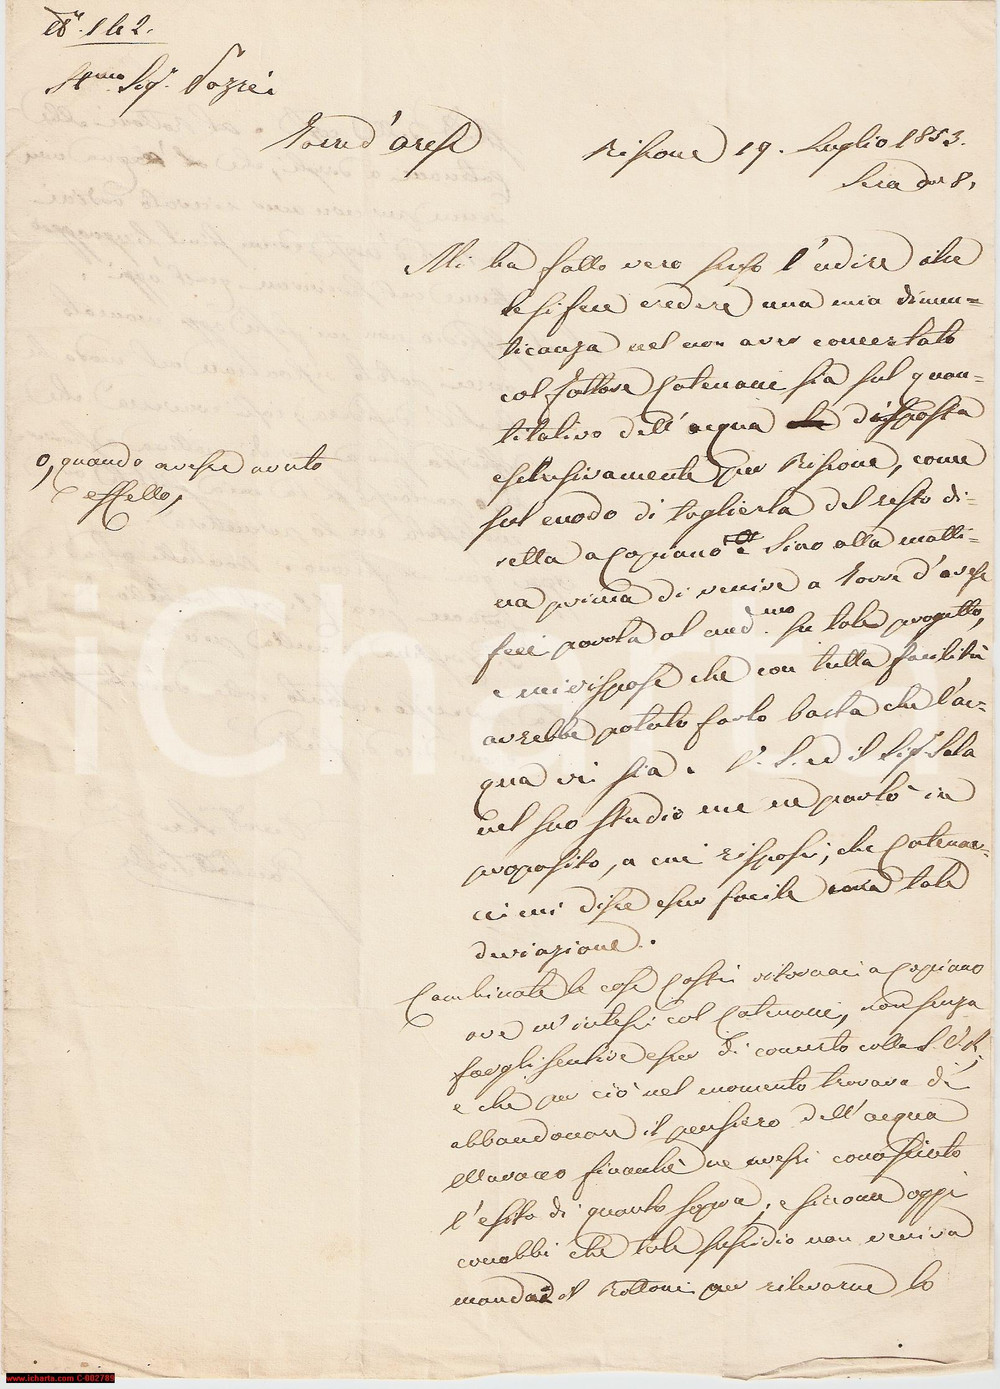 N.º 142.
Ill.mo Sig.r Pozzi
Torre d'arese
Rissone 19. Luglio 1853.
Sera ore 8,
Mi ha fatto vero senso l'udire che
le si fece credere una mia dimen=
ticanza nel non aver concertato
col fattore Catenacci sia sul quan=
titativo dell'acqua disposta
esclusivamente per Rissone, come
sul modo di toglierla del resto di=
retta a Copiano. Sino alla matti=
na prima di venire a Torre d'arese
feci parola al med.mo su tale progetto,
e mi rispose che con tutta facilità
avrebbe potuto farlo basta che l'ac=
qua vi sia. V. S. ed il Sig.r Sala
nel suo studio me ne parlò in
proposito, a cui risposi, che Catenac=
ci mi disse esser facile tale
deviazione.
o, quando avesse avuto
effetto,
Combinate le cose costì ritornai a Copiano
ove m'intesi col Catenacci, non senza
fargli sentire esser di concerto colla S. V. Ill.
e che per ciò nel momento trovava di
abbandonare il pensiero dell'acqua
finanché ne avessi conosciuto
l'esito di quanto sopra, e siccome oggi
conobbi che tale sussidio non veniva
mandai il Rottoni per rilevarne lo
iCharta
www.icharta.com C-002789